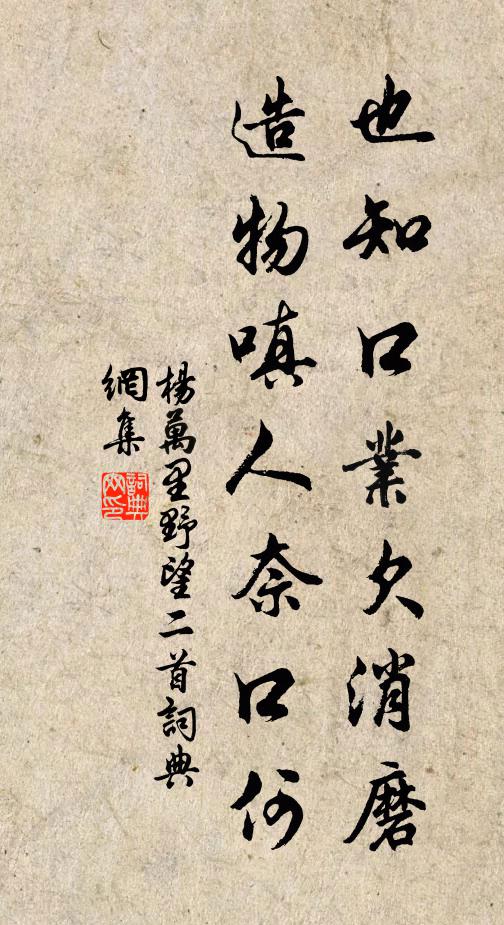 也知口業欠消磨
造物嗔人奈口何
楊萬里野望二首詞典
網集
詞典
網印